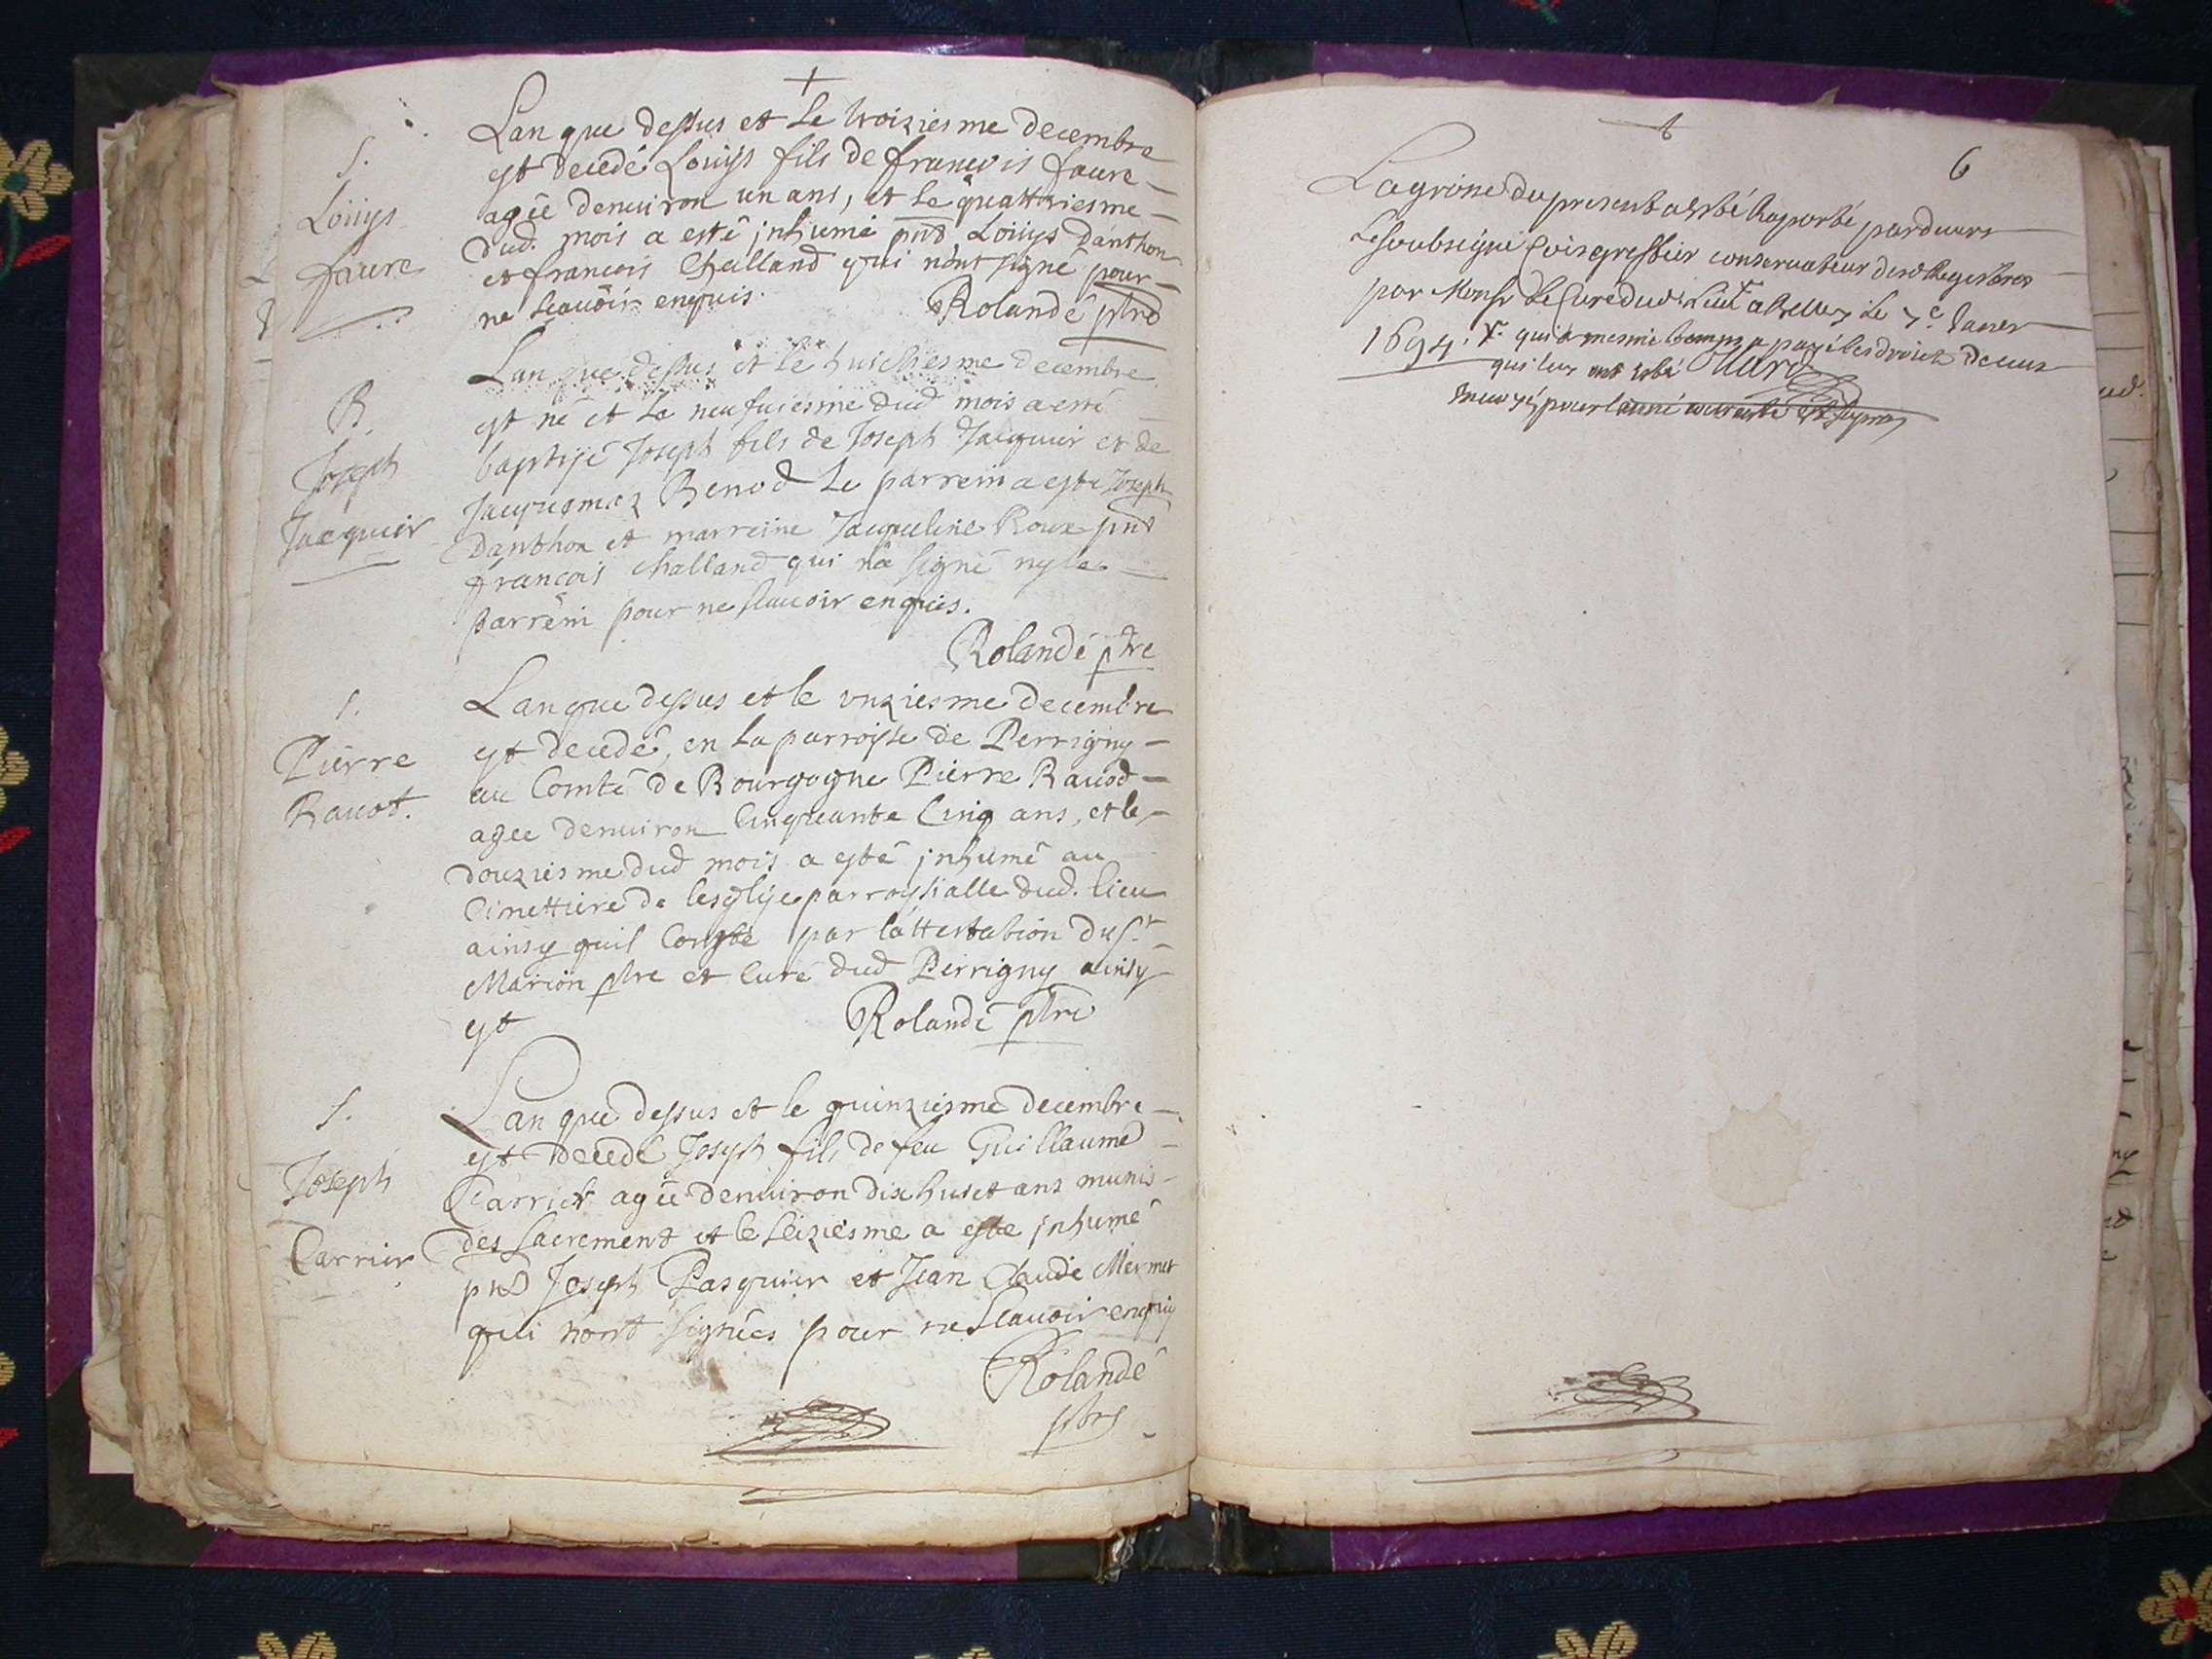 +
S.
Loüys
faure
Lan que dessus et le troiziesme decembre
est decedé Loüijs fils de francois faure
agée denuiron un ans, et le quattriesme
dud. mois a esté jnhumé pnt Loüys Danthon
et francois Challand qui nont signé pour
ne scauoir enquis.
Rolandé ptre
B.
Joseph
Jacquier
Lan que dessus et le huictiesme decembre
est né et le neufuiesme dud mois a esté
baptisé Joseph fils de Joseph Jacquier et de
Jacquemaz Benod le parrein a esté Joseph
Danthon et marreine Jacqueline Roux pnt
francois challand qui na signé ny le
parrein pour ne scauoir enquis.
Rolandé ptre
S.
Pierre
Rauot.
Lan que dessus et le vnziesme decembre
est decedé, en la parroisse de Perrigny
au Comté de Bourgogne Pierre Rauod
agee denuiron Cinquante Cinq ans, et le
douziesme dud mois a esté jnhumé au
Cimettiere de lesglise parroyssialle dud. lieu
ainsy quil Conste par lattestation du sr
Marion ptre et curé dud Perrigny ainsy
est
Rolandé ptre
S.
Joseph
Carrier
Lan que dessus et le quinziesme decembre
est decedé Joseph fils de feu Guillaume
Carrier agée denuiron dix huict ans munis
des sacrement et le seiziesme a esté jnhumé
pnt Joseph Pasquier et Jean Claude Mermet
qui nont signées pour ne scauoir enquis
Rolandé
ptre
+
6
La grosse du present a esté Raporté pardeuers
Le soubsigné greffier conseruateur desd Registres
par Monsr Le Curé dud. Lieu a Belley Le 7e Januer
1694. qui a mesme temps a payé les droictz deceus
qui luy ont esté
pour lanné courante